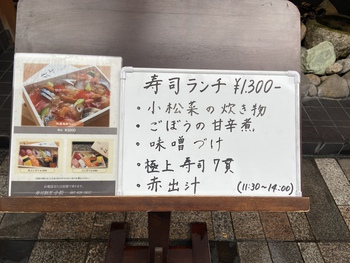 寿司ランチ ¥1,300-
・小松菜の炊き物
・ごぼうの甘辛煮
・味噌づけ
・極上寿司7貫
・赤出汁 (11:30~14:00)